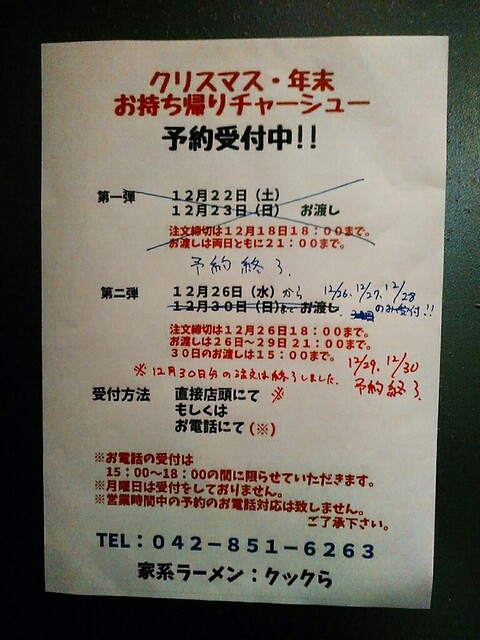 クリスマス・年末
お持ち帰りチャーシュー
予約受付中!!
第一弾 12月22日（土）
12月23日（日） お渡し
注文締切は12月18日18：00まで。
お渡しは両日ともに21：00まで。
予約終了.
第二弾 12月26日（水）から 12/26, 12/27, 12/28
12月30日（日）まで お渡し のみ受付!!
注文締切は12月26日18：00まで。
お渡しは26日～29日21：00まで。
30日のお渡しは15：00まで。 12/29, 12/30
※12月30日分の注文は終了しました. 予約終了.
受付方法 直接店頭にて ※
もしくは
お電話にて(※)
※お電話の受付は
15：00～18：00の間に限らせていただきます。
※月曜日は受付をしておりません。
※営業時間中の予約のお電話対応は致しません。
ご了承下さい。
TEL：042－851－6263
家系ラーメン：クックら